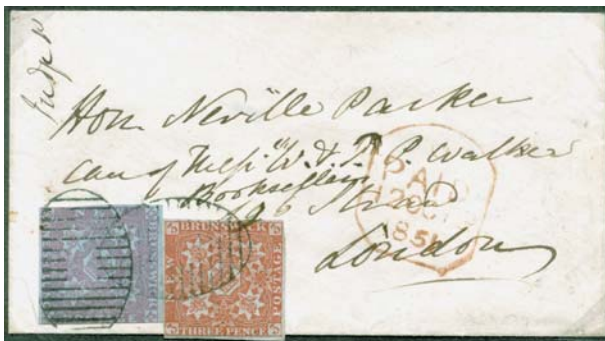 Hon. Neville Parker
care of Messrs W. & T. P. Walker
Booksellers
196 Strand
London
PAID
1851
NEW BRUNSWICK POSTAGE
THREE PENCE